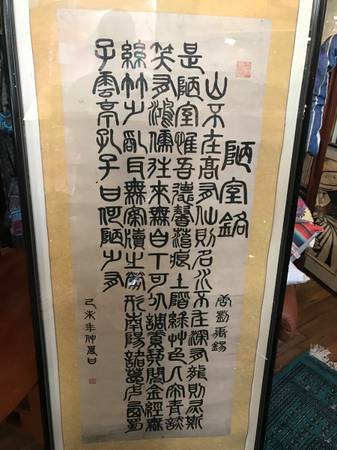 陋室銘
唐劉禹錫
山不在高有仙則名水不在深有龍則靈斯
是陋室惟吾德馨苔痕上階綠艸色入帘青談
笑有鴻儒往來無白丁可以調素琴閱金經無
絲竹之亂耳無案牘之勞形南陽諸葛廬西蜀
子雲亭孔子曰何陋之有
己未年仲夏日